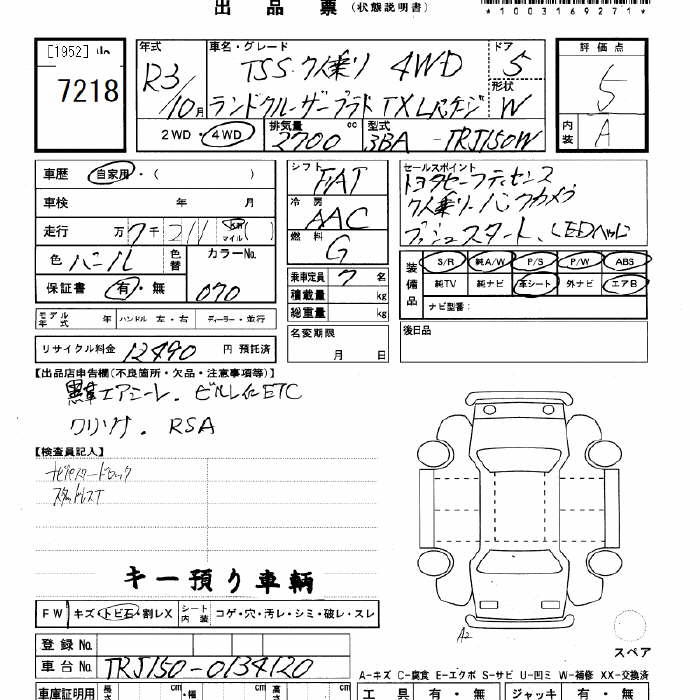 出品票 (状態説明書)
*1003169271*
[1952]
7218
年式 R3/10月
車名・グレード TSS・7人乗り 4WD
ランドクルーザープラド TX Lパッケージ
ドア 5
形状 W
2WD・4WD
排気量 2700 cc
型式 3BA-TRJ150W
評価点 5
内装 A
車歴 自家用・( )
車検 年 月
走行 万 7千 211 km マイル ( )
色 パール 色替
カラーNo. 070
保証書 有・無
モデル年式 年 ハンドル 左・右 ディーラー・並行
リサイクル料金 12490 円 預託済
シフト FAT
冷房 AAC
燃料 G
乗車定員 7 名
積載量 kg
総重量 kg
名変期限 月 日
セールスポイント
トヨタセーフティセンス
7人乗り バックカメラ
プッシュスタート、LEDヘッド
装備品
S/R 純A/W P/S P/W ABS
純TV 純ナビ 革シート 外ナビ エアB
ナビ型番:
後日品
【出品店申告欄(不良箇所・欠品・注意事項等)】
黒革エアシート、ビルトインETC
クリソナ、RSA
【検査員記入】
スタッドレスT
キー預り車輌
FW キズ・トビ石・割レX シート内装 コゲ・穴・汚レ・シミ・破レ・スレ
登録No.
車台No. TRJ150-0134120
A2
スペア
A-キズ C-腐食 E-エクボ S-サビ U-凹ミ W-補修 XX-交換済
車庫証明用 長さ cm ・幅 cm 高さ cm
工具 有・無 ジャッキ 有・無